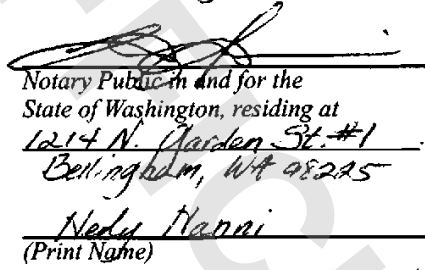 Notary Public in and for the
State of Washington, residing at
1214 N. Garden St. #1
Bellingham, WA 98225
Nedy Nanni
(Print Name)